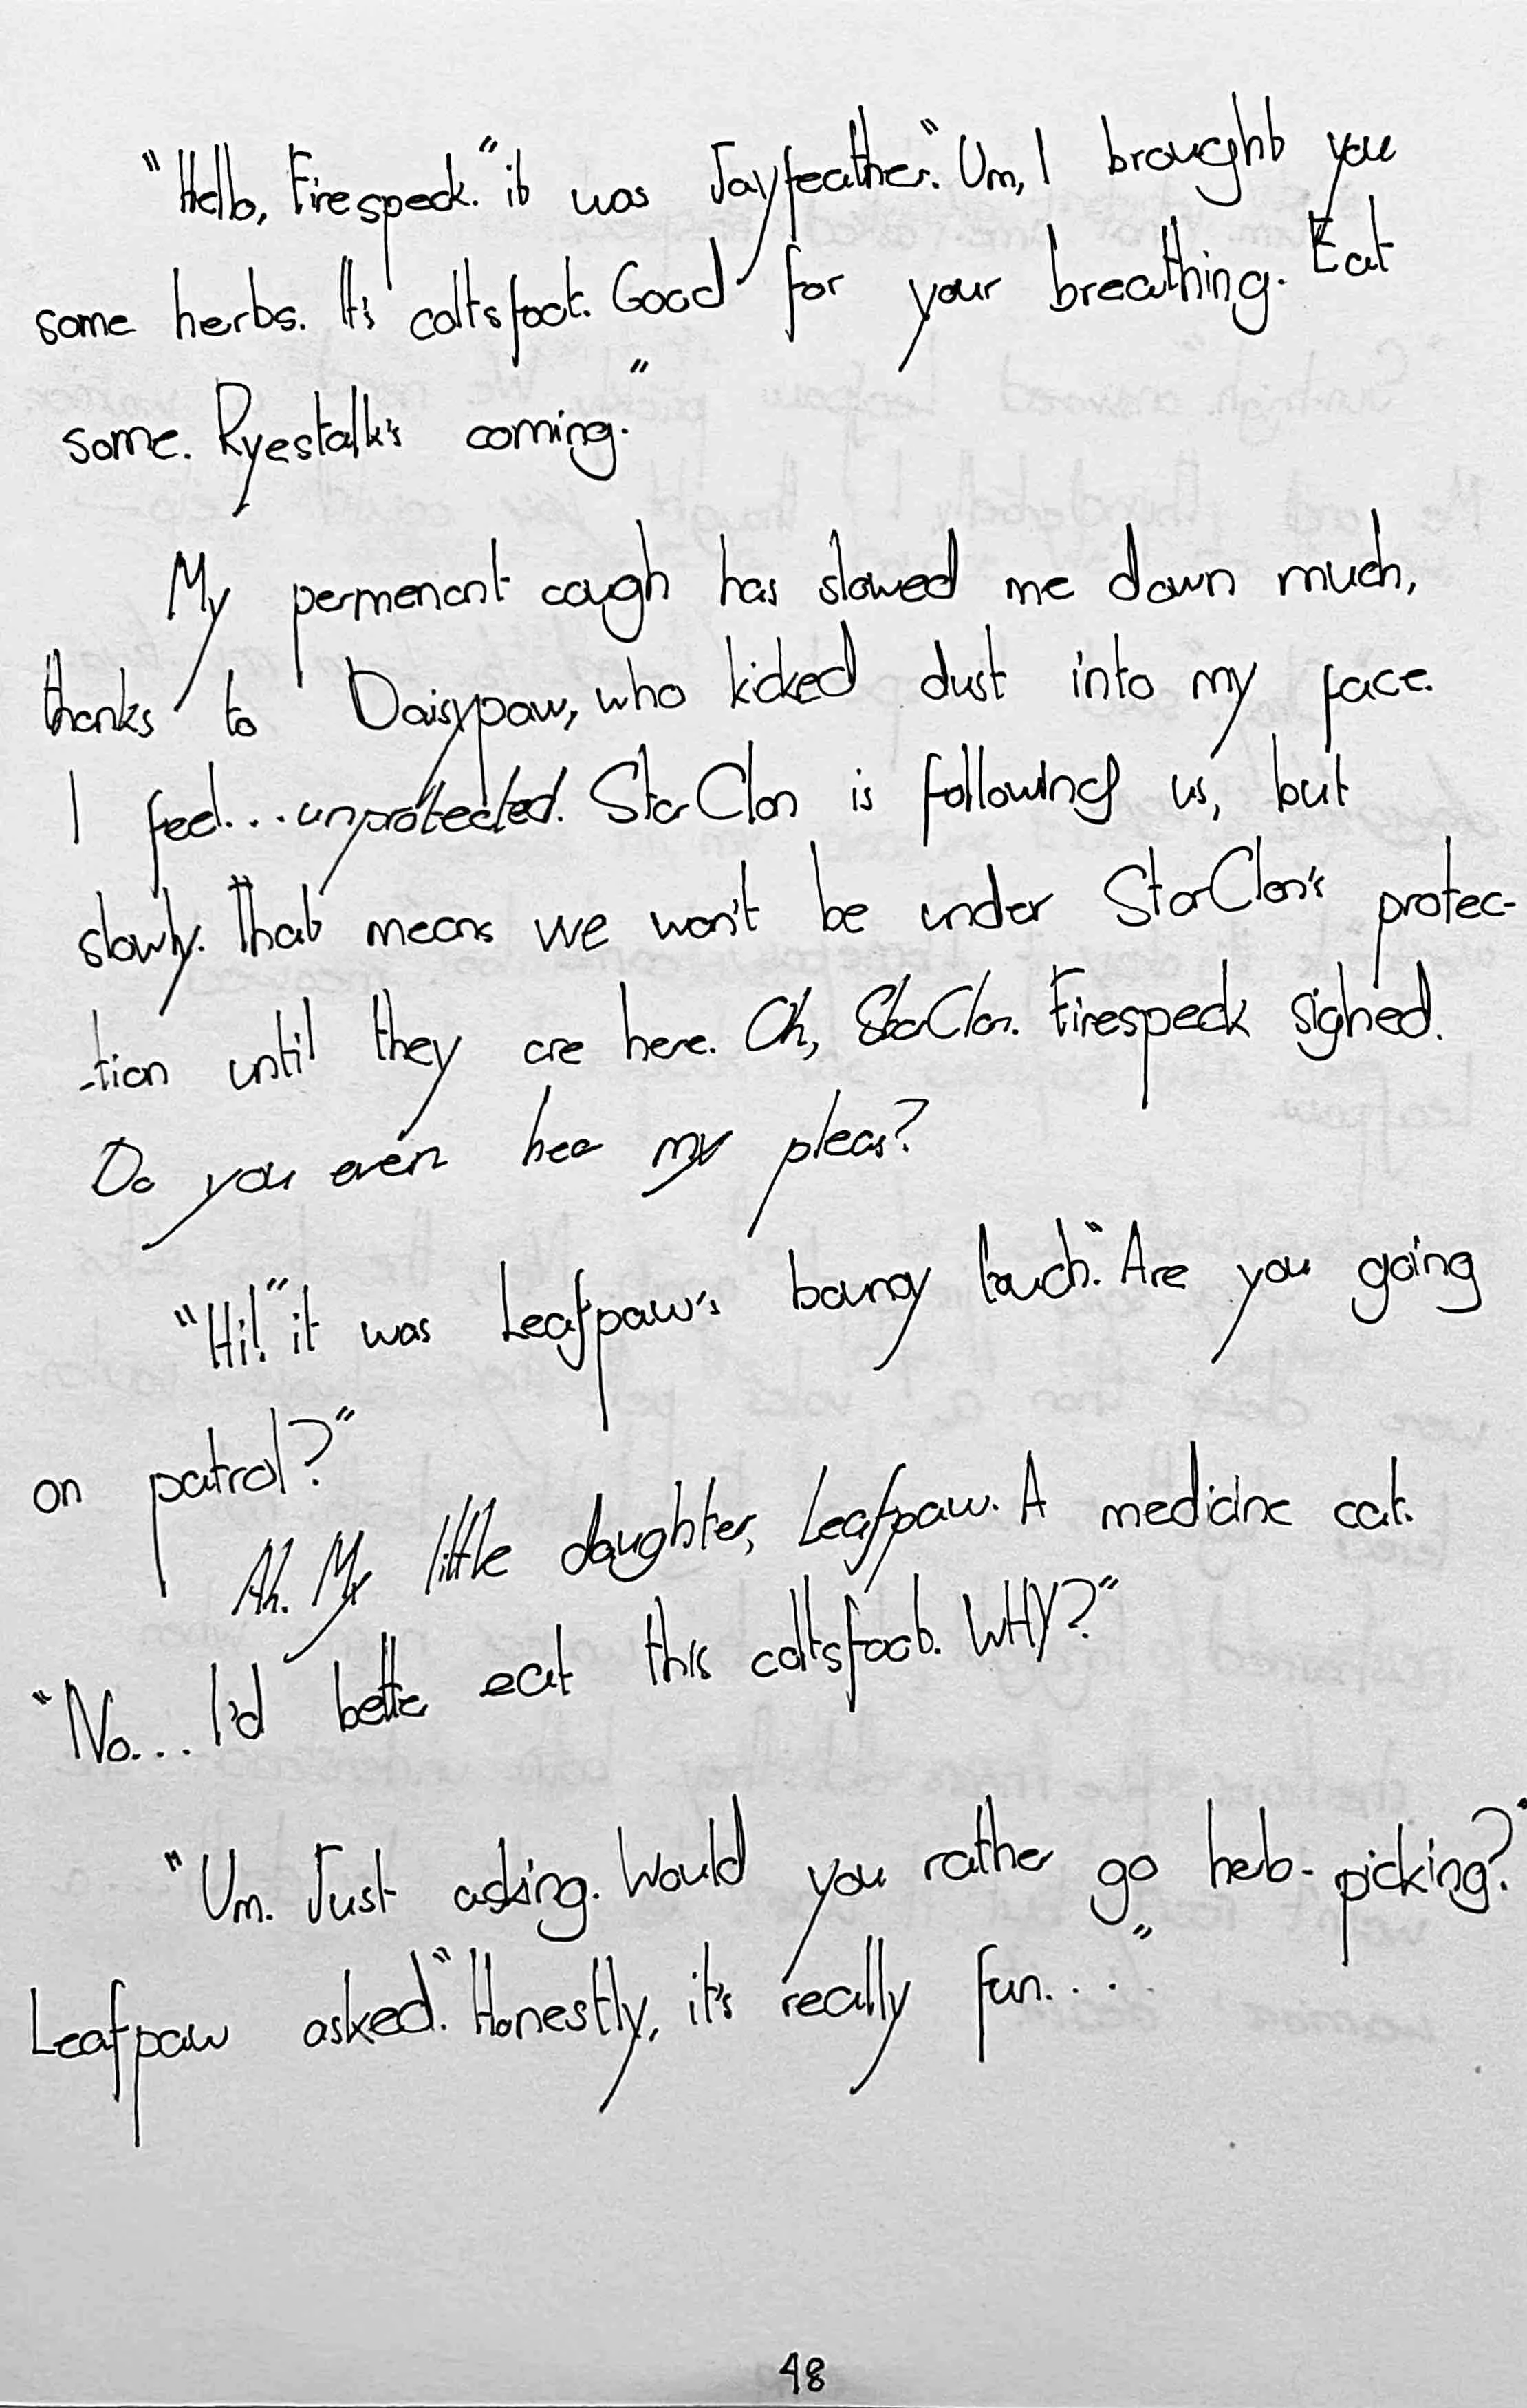 "Hello, Firespeck." it was Jayfeather. "Um, I brought you
some herbs. It's coltsfoot. Good for your breathing. Eat
some. Ryestalk's coming."
My permenant cough has slowed me down much,
thanks to Daisypaw, who kicked dust into my face.
I feel... unprotected. StarClan is following us, but
slowly. That means we won't be under StarClan's protec-
-tion until they are here. Oh, StarClan. Firespeck sighed.
Do you even hear my pleas?
"Hi!" it was Leafpaw's bouncy touch. "Are you going
on patrol?"
Ah. My little daughter, Leafpaw. A medicine cat.
"No... I'd better eat this coltsfoot. WHY?"
"Um. Just asking. Would you rather go herb-picking?"
Leafpaw asked. "Honestly, it's really fun...."
48